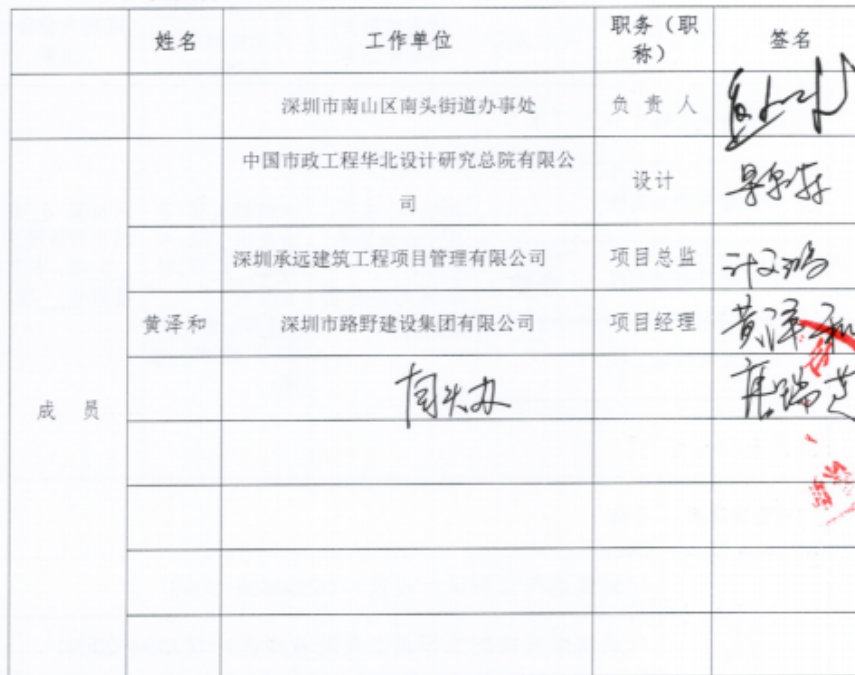 姓名 工作单位 职务（职称） 签名
深圳市南山区南头街道办事处 负责人
中国市政工程华北设计研究总院有限公司 设计
深圳承远建筑工程项目管理有限公司 项目总监
黄泽和 深圳市路野建设集团有限公司 项目经理 黄泽和
成员 南头办